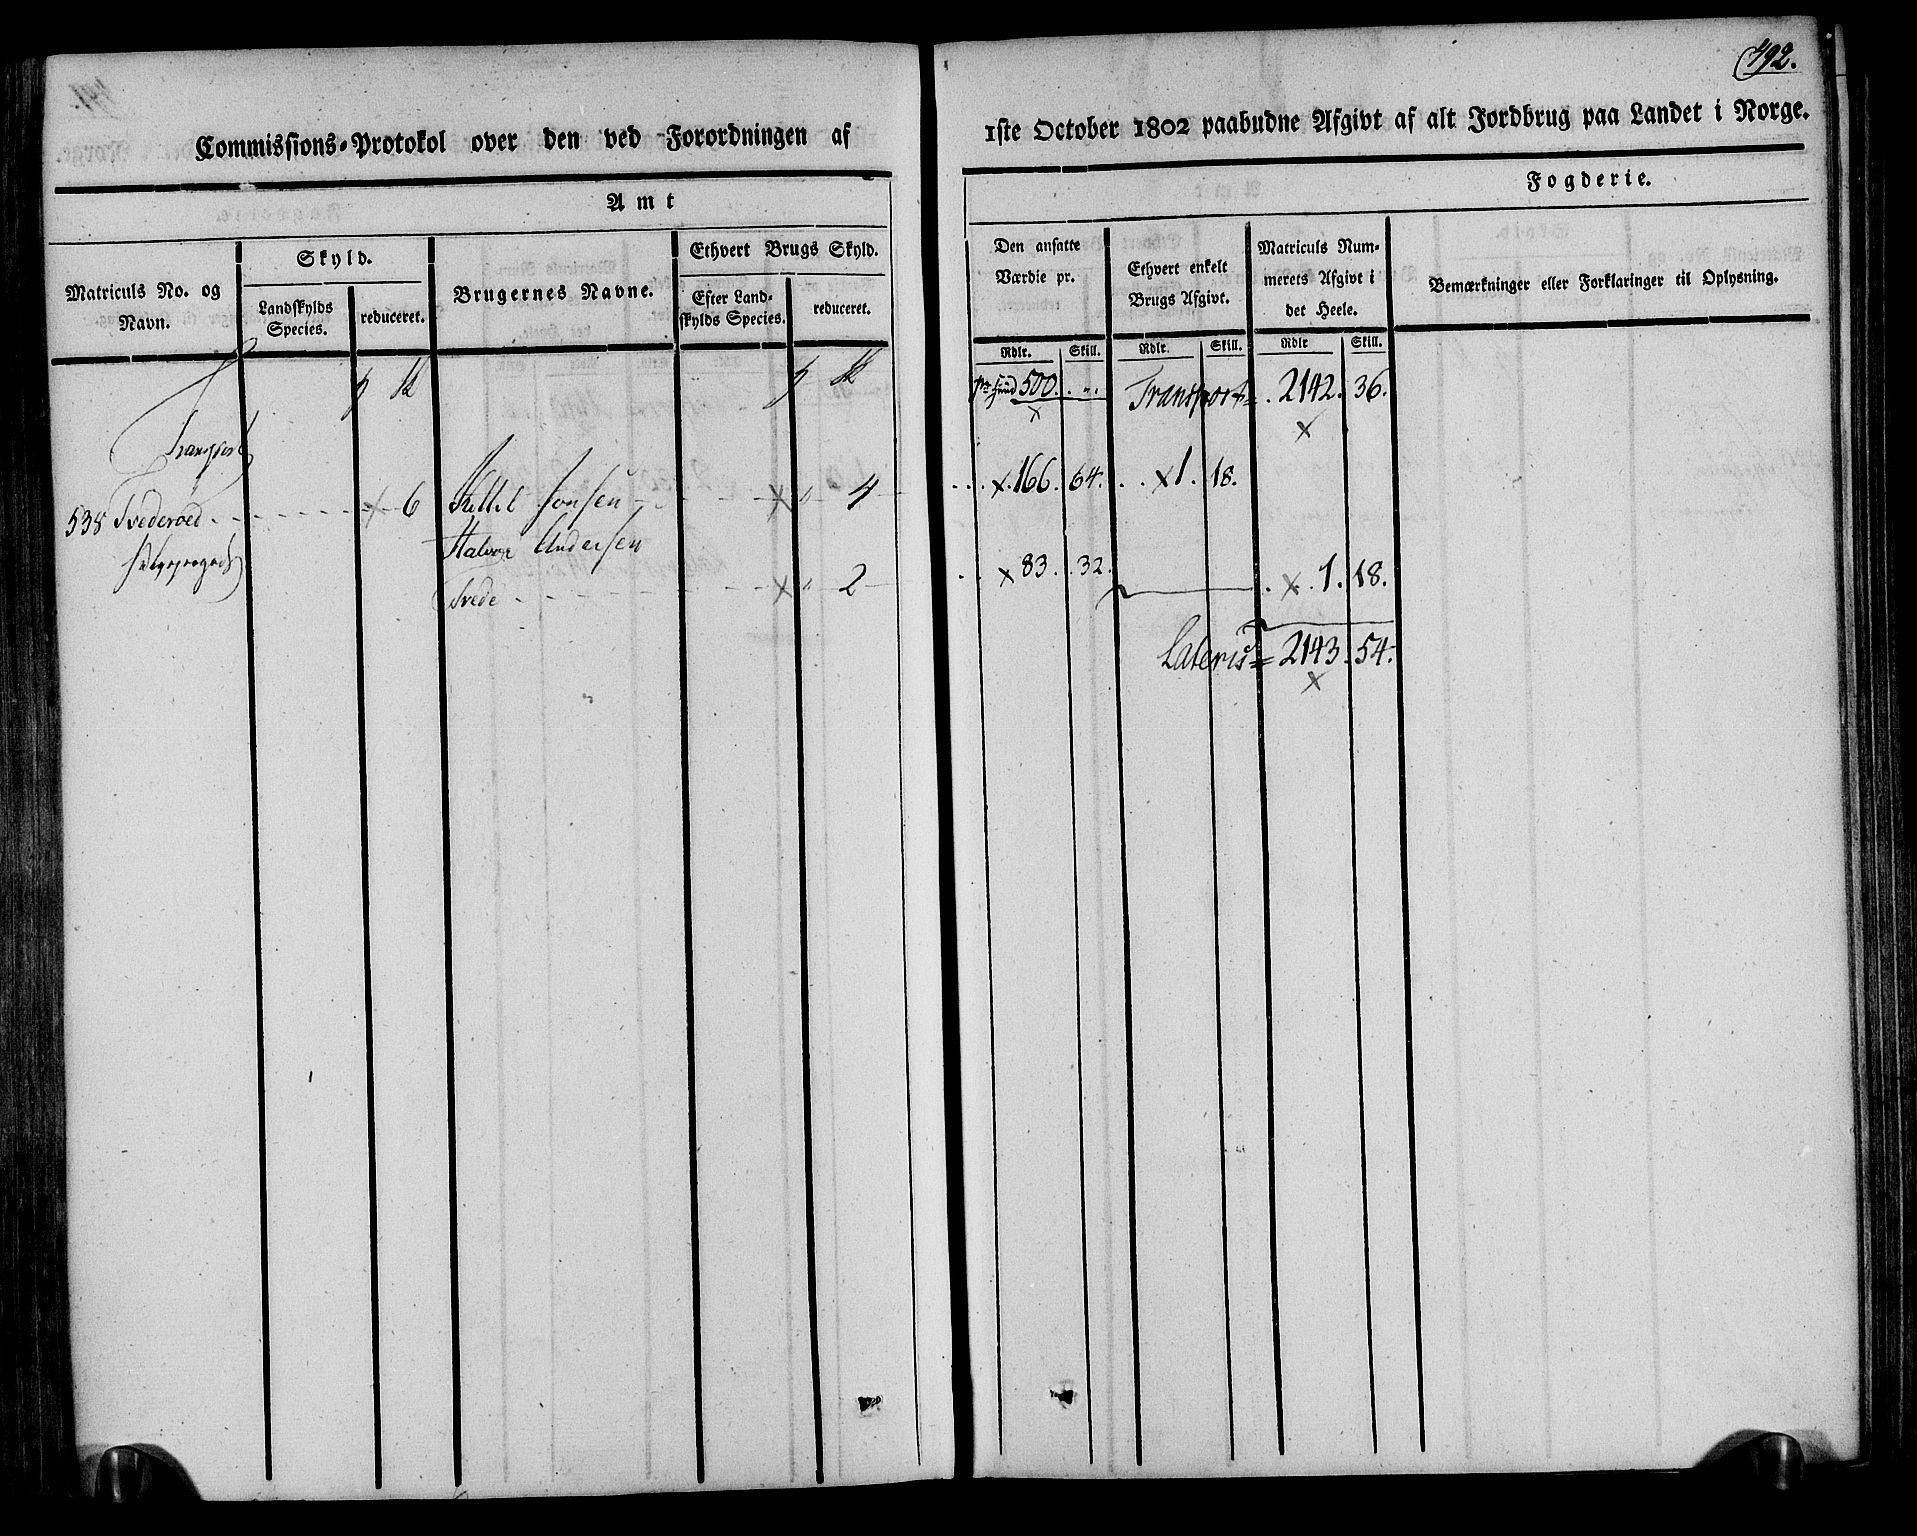 492.
Commissions-Protokol over den ved Forordningen af 1ste October 1802 paabudne Afgivt af alt Jordbrug paa Landet i Norge.
Amt
Fogderie.
Matriculs No. og Navn.
Skyld.
Landskylds Species.
reduceret.
Brugernes Navne.
Ethvert Brugs Skyld.
Efter Landskylds Species.
reduceret.
Den ansatte Værdie pr.
Ethvert enkelt Brugs Afgivt.
Matriculs Nummerets Afgivt i det Heele.
Bemærkninger eller Forklaringer til Oplysning.
Rdlr. Skill. Rdlr. Skill. Rdlr Skill.
Transport
pr hud 500. „ Transport = 2142. 36.
538 Tvederoed 6 Kittil Jonsen 4 166. 64. 1. 18.
Halvor Andersen
Tvede 2 83. 32. 1. 18.
Lateris = 2143. 54.